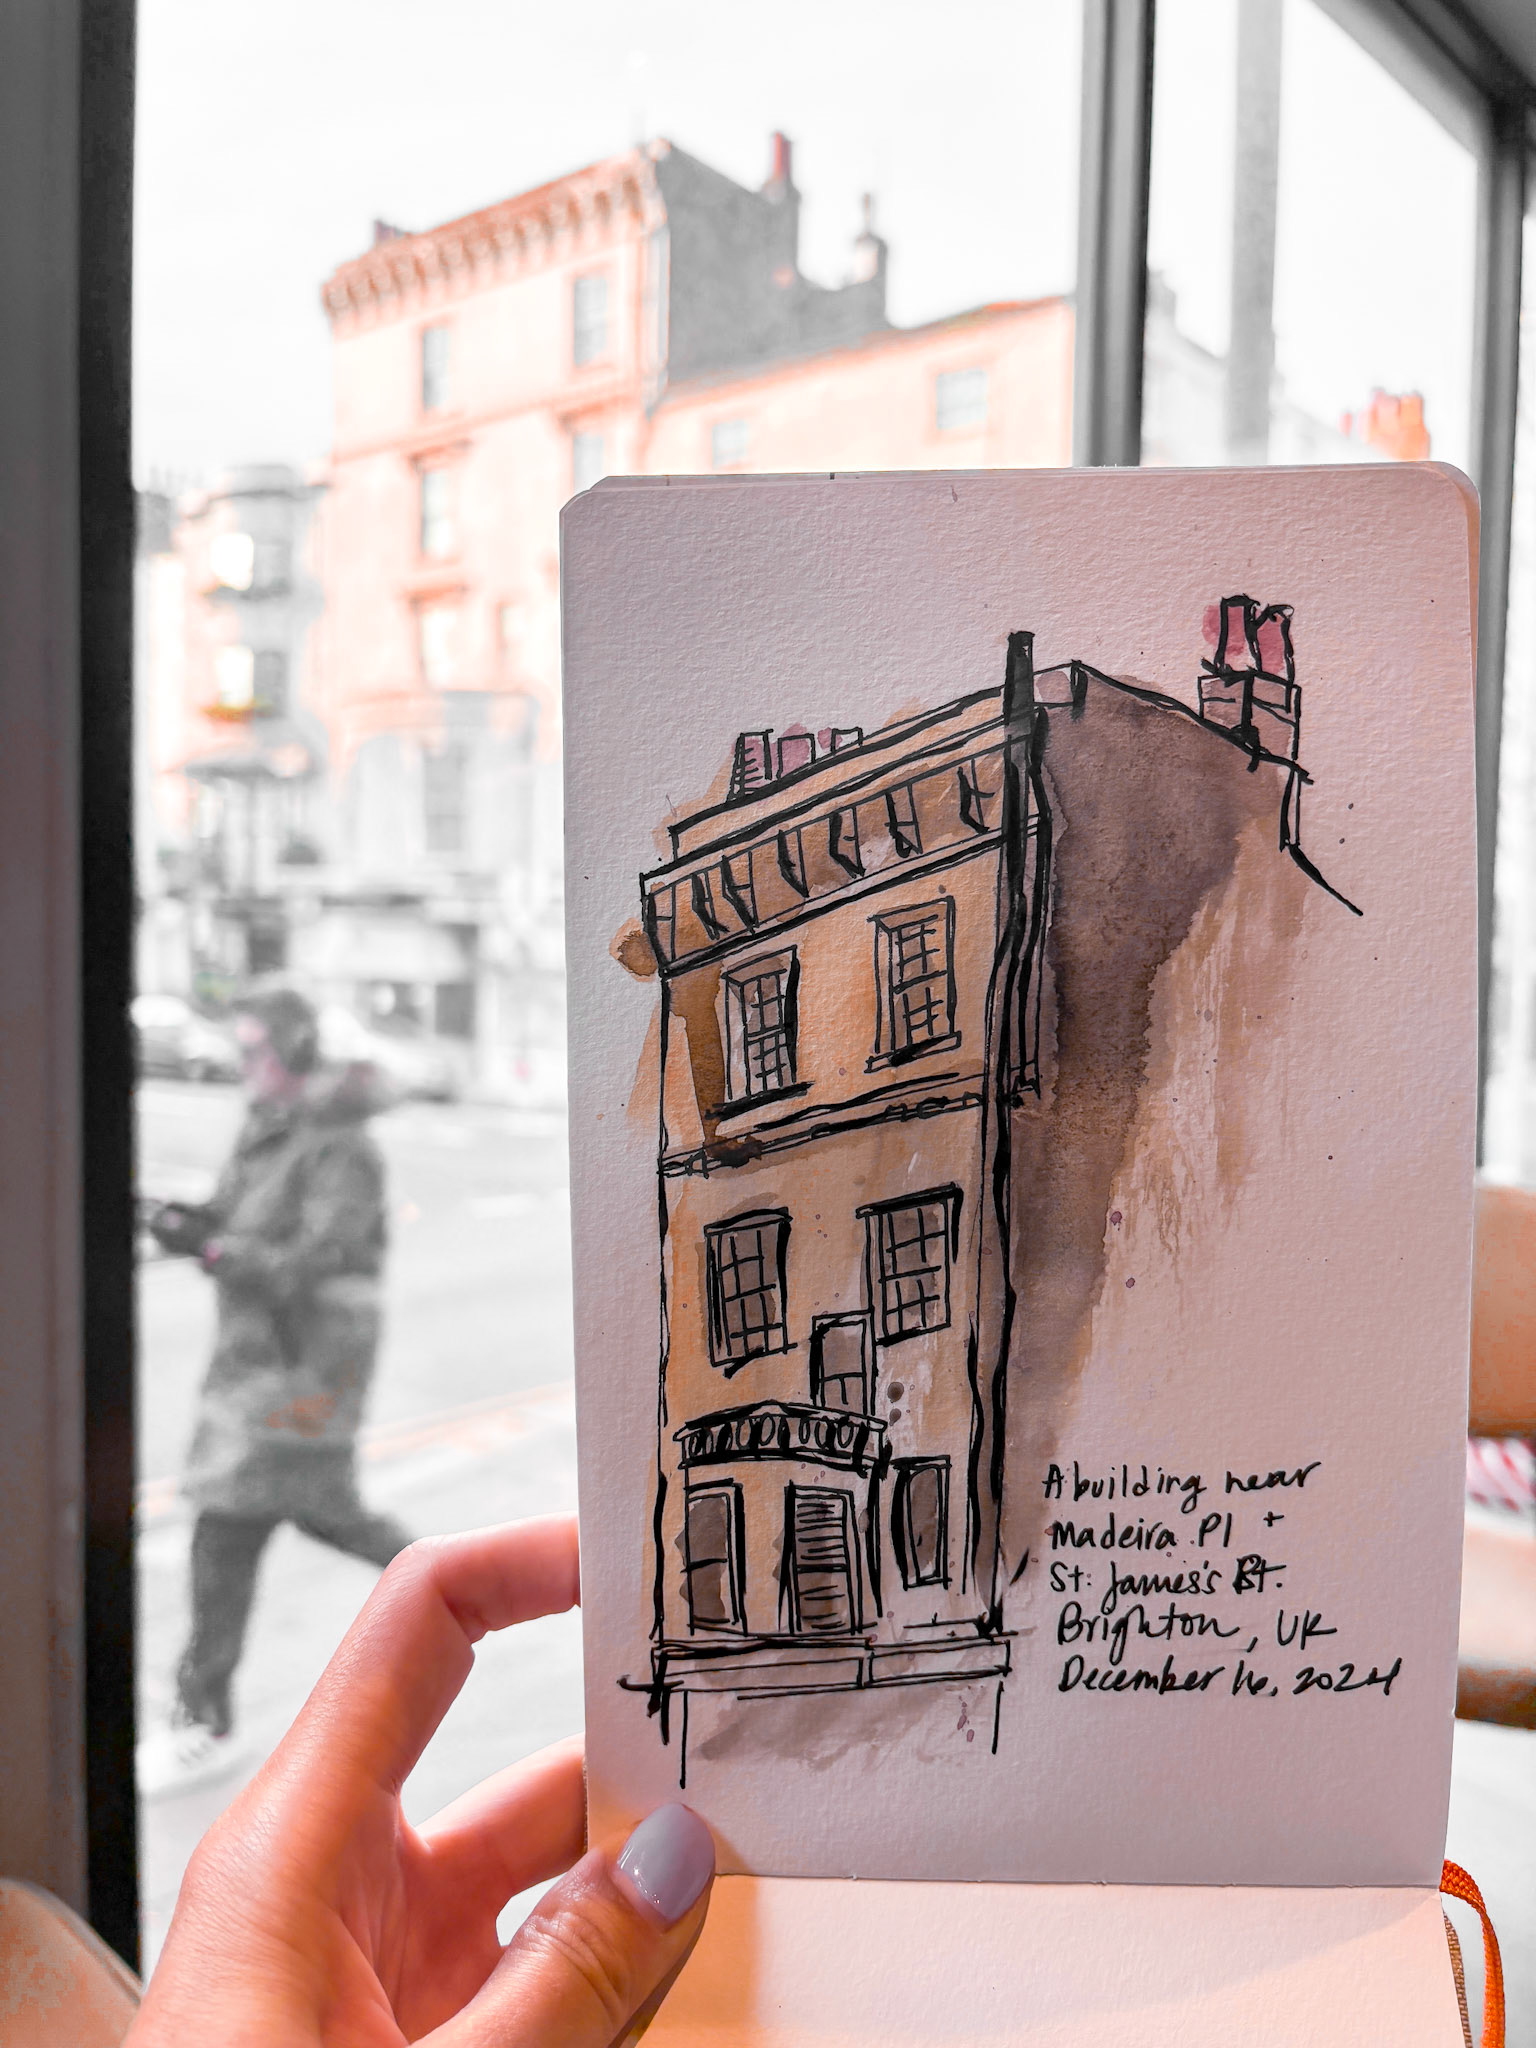 A building near
Madeira Pl +
St. James's St.
Brighton, UK
December 16, 2024